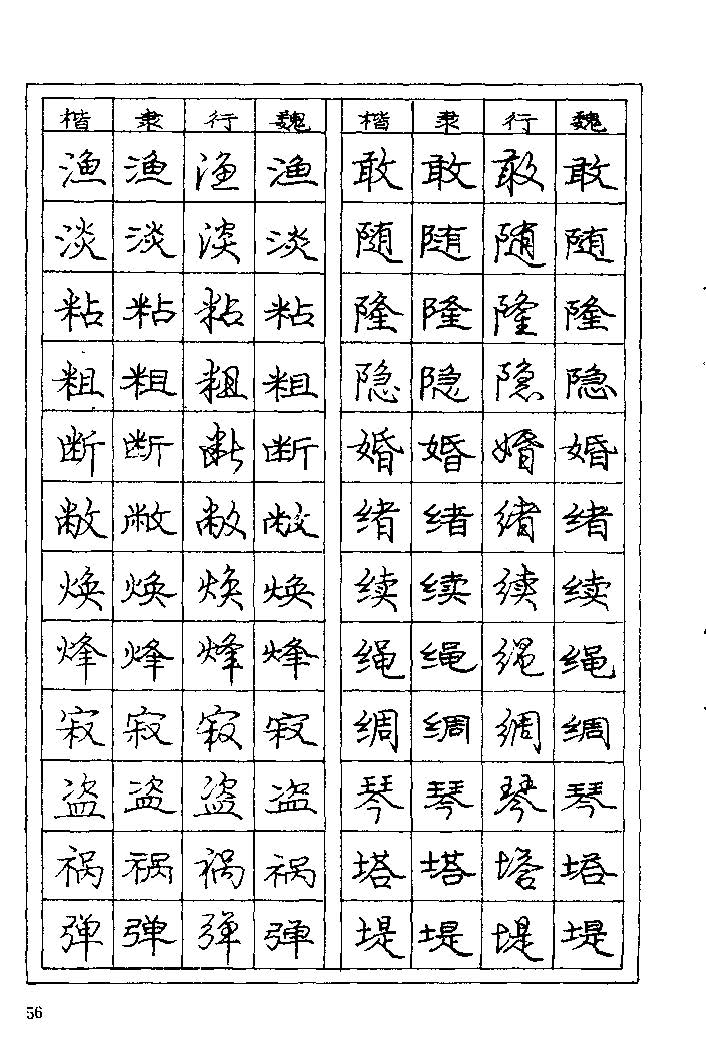 楷 隶 行 魏 楷 隶 行 魏
渔 渔 渔 渔 敢 敢 敢 敢
淡 淡 淡 淡 随 随 随 随
粘 粘 粘 粘 隆 隆 隆 隆
粗 粗 粗 粗 隐 隐 隐 隐
断 断 断 断 婚 婚 婚 婚
敝 敝 敝 敝 绪 绪 绪 绪
焕 焕 焕 焕 续 续 续 续
烽 烽 烽 烽 绳 绳 绳 绳
寂 寂 寂 寂 绸 绸 绸 绸
盗 盗 盗 盗 琴 琴 琴 琴
祸 祸 祸 祸 塔 塔 塔 塔
弹 弹 弹 弹 堤 堤 堤 堤
56